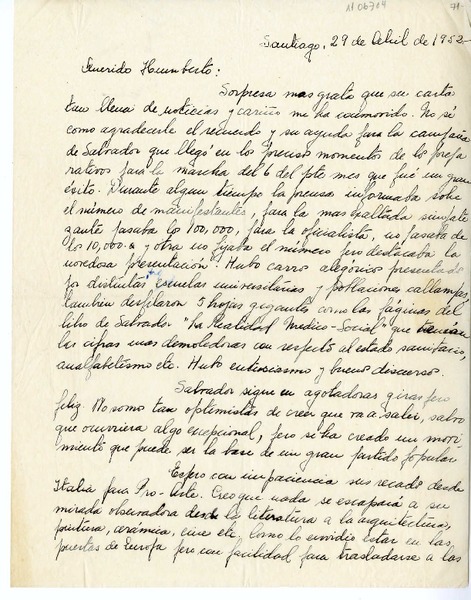 1106704
71-
Santiago, 29 de Abril de 1952-
Querido Humberto:
Sorpresa mas grata que su carta
tan llena de noticias y cariño me ha conmovido. No sé
como agradecerle el recuerdo y su ayuda para la campaña
de Salvador que llegó en lo precisos momentos de lo prepa
rativos para la marcha del 6 del pte mes que fué un gran
éxito. Durante algun tiempo la prensa informaba sobre
el número de manifestantes, para la mas exaltada simpati
zante pasaba lo 100,000, para la oficialista, no pasaba de
los 10,000.- y otra no fijaba el número pero destacaba la
novedosa presentación. Hubo carros alegóricos presentado
por distintas escuelas universitarias y poblaciones callampas,
tambien desfilaron 5 hojas gigantes como las páginas del
libro de Salvador "La Realidad Medico-Social" que tenian
las cifras mas demoledoras con respecto al estado sanitario,
analfabetismo etc. Hubo entusiasmo y buenos discursos.
Salvador sigue en agotadoras giras pero
feliz. No somo tan optimistas de creer que va a salir, salvo
que ocurriera algo excepcional, pero se ha creado un movi
miento que puede ser la base de un gran partido popular.
Espero con impaciencia sus recado desde
Italia para Pro-Arte. Creo que nada se escapará a su
mirada observadora desde la literatura a la arquitectura,
pintura, cerámica, cine etc. Como lo envidio estar en las
puertas de Europa pero con facilidad para trasladarse a las